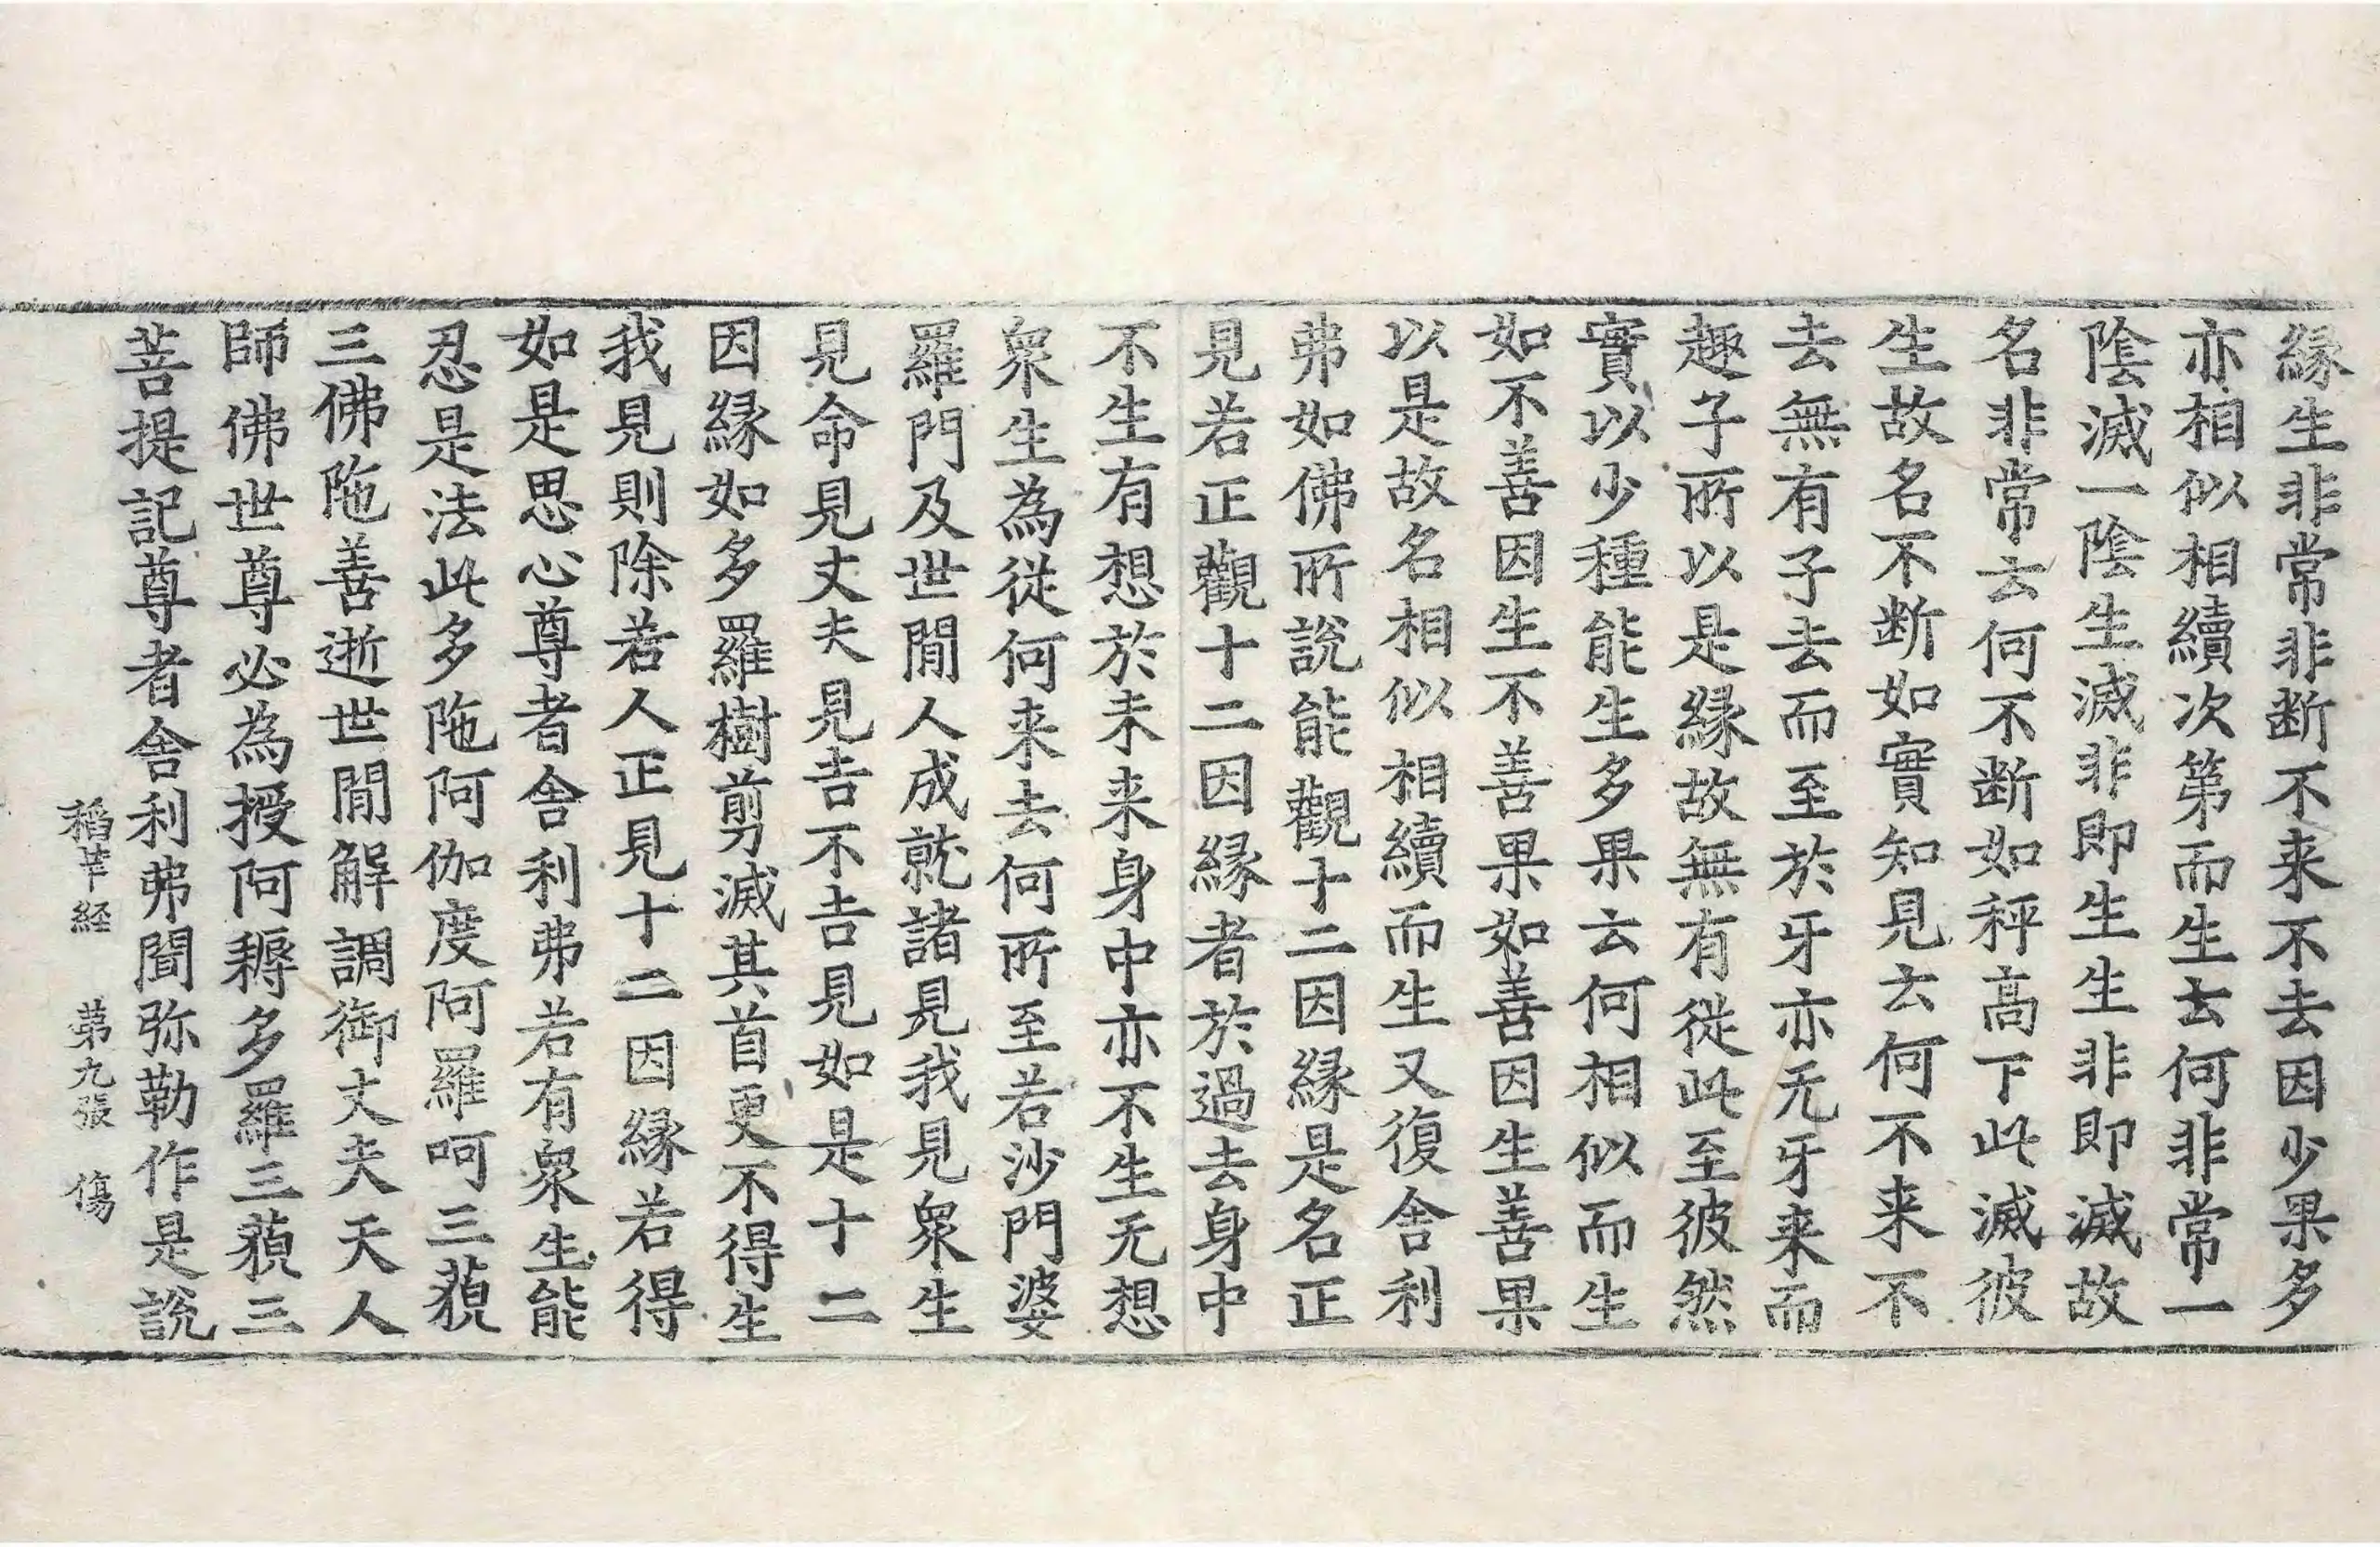 縁生非常非断不来不去因少果多
亦相似相續次第而生去何非常一
陰滅一陰生滅非即生生非即滅故
名非常去何不断如秤高下此滅彼
生故名不断如實知見去何不来不
去無有子去而至於牙亦无牙来而
趣子所以是縁故無有從此至彼然
實以少種能生多果云何相似而生
如不善因生不善果如善因生善果
以是故名相似相續而生又復舎利
弗如佛所説能觀十二因縁是名正
見若正觀十二因縁者於過去身中
不生有想於未来身中亦不生无想
衆生為從何来去何所至若沙門婆
羅門及世閒人成就諸見我見衆生
見命見丈夫見吉不吉見如是十二
因縁如多羅樹剪滅其首更不得生
我見則除若人正見十二因縁若得
如是思心尊者舎利弗若有衆生能
忍是法此多陁阿伽度阿羅呵三藐
三佛陁善逝世閒解調御丈夫天人
師佛世尊必為授阿耨多羅三藐三
菩提記尊者舎利弗聞弥勒作是説
稻芉経 第九張 傷